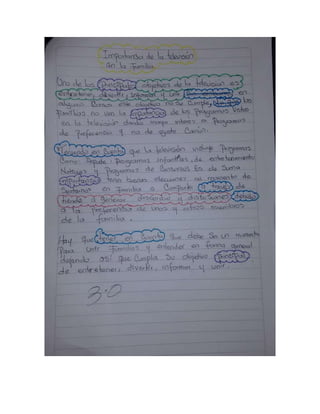 Importansa de la television
en la Familia.
Uno de los principales objetivos de la television es
entretener, divertir, informar y unir en
algunos Casos este objetivo no se Cumple,
familias no ven la importansa de los Programas Vistos
en la television donde mayor interes a Programas
de Preferencia y no de gusto Comun.
que la television incluye Programas
Como: Programas infantiles, de entretenimiento
Noticias y Programas de Concursos Es de Suma
importansia tener buenas elecciones al momento de
Sentarse en Familia a Compartir
a generar y
a la preferencia de unos y otros miembros
de la familia.
Hay que tener en Cuenta que debe Ser un momento
Para unir Familias y entender en forma general
dejando así que Cumpla Su objetivo principal
de entretener, divertir, informar y unir.
3.0